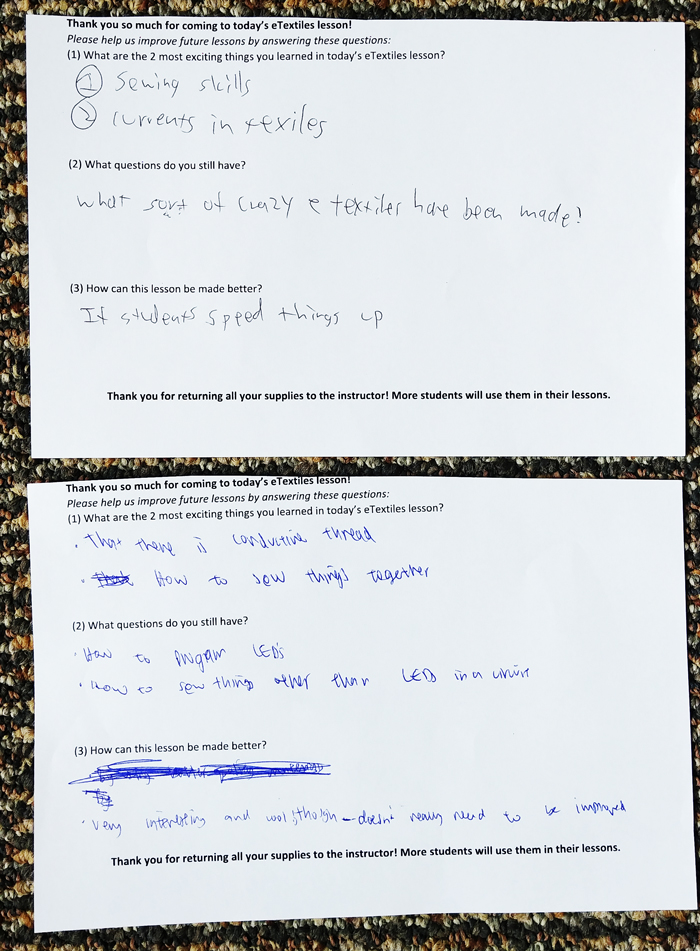 Thank you so much for coming to today's eTextiles lesson!
Please help us improve future lessons by answering these questions:
(1) What are the 2 most exciting things you learned in today's eTextiles lesson?
① Sewing skills
② currents in texiles
(2) What questions do you still have?
What sort of crazy e textiles have been made?
(3) How can this lesson be made better?
If students speed things up
Thank you for returning all your supplies to the instructor! More students will use them in their lessons.
Thank you so much for coming to today's eTextiles lesson!
Please help us improve future lessons by answering these questions:
(1) What are the 2 most exciting things you learned in today's eTextiles lesson?
• That there is conductive thread
• How to sew things together
(2) What questions do you still have?
• How to program LEDs
• How to sew things other than LEDs in a
(3) How can this lesson be made better?
• Very interesting and cool though – doesn't really need to be improved
Thank you for returning all your supplies to the instructor! More students will use them in their lessons.